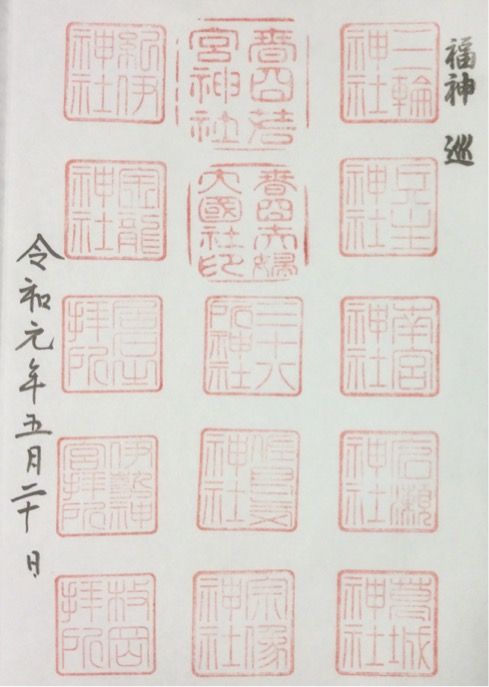 福神 巡
三輪
神社
兵主
神社
南宮
神社
広瀬
神社
葛城
神社
春日若
宮神社
春日夫婦
大國社印
三十八
所神社
佐良気
神社
宗像
神社
紀伊
神社
金龍
神社
拝所
伊勢神
宮拝所
枚岡
拝所
令和元年五月二十日